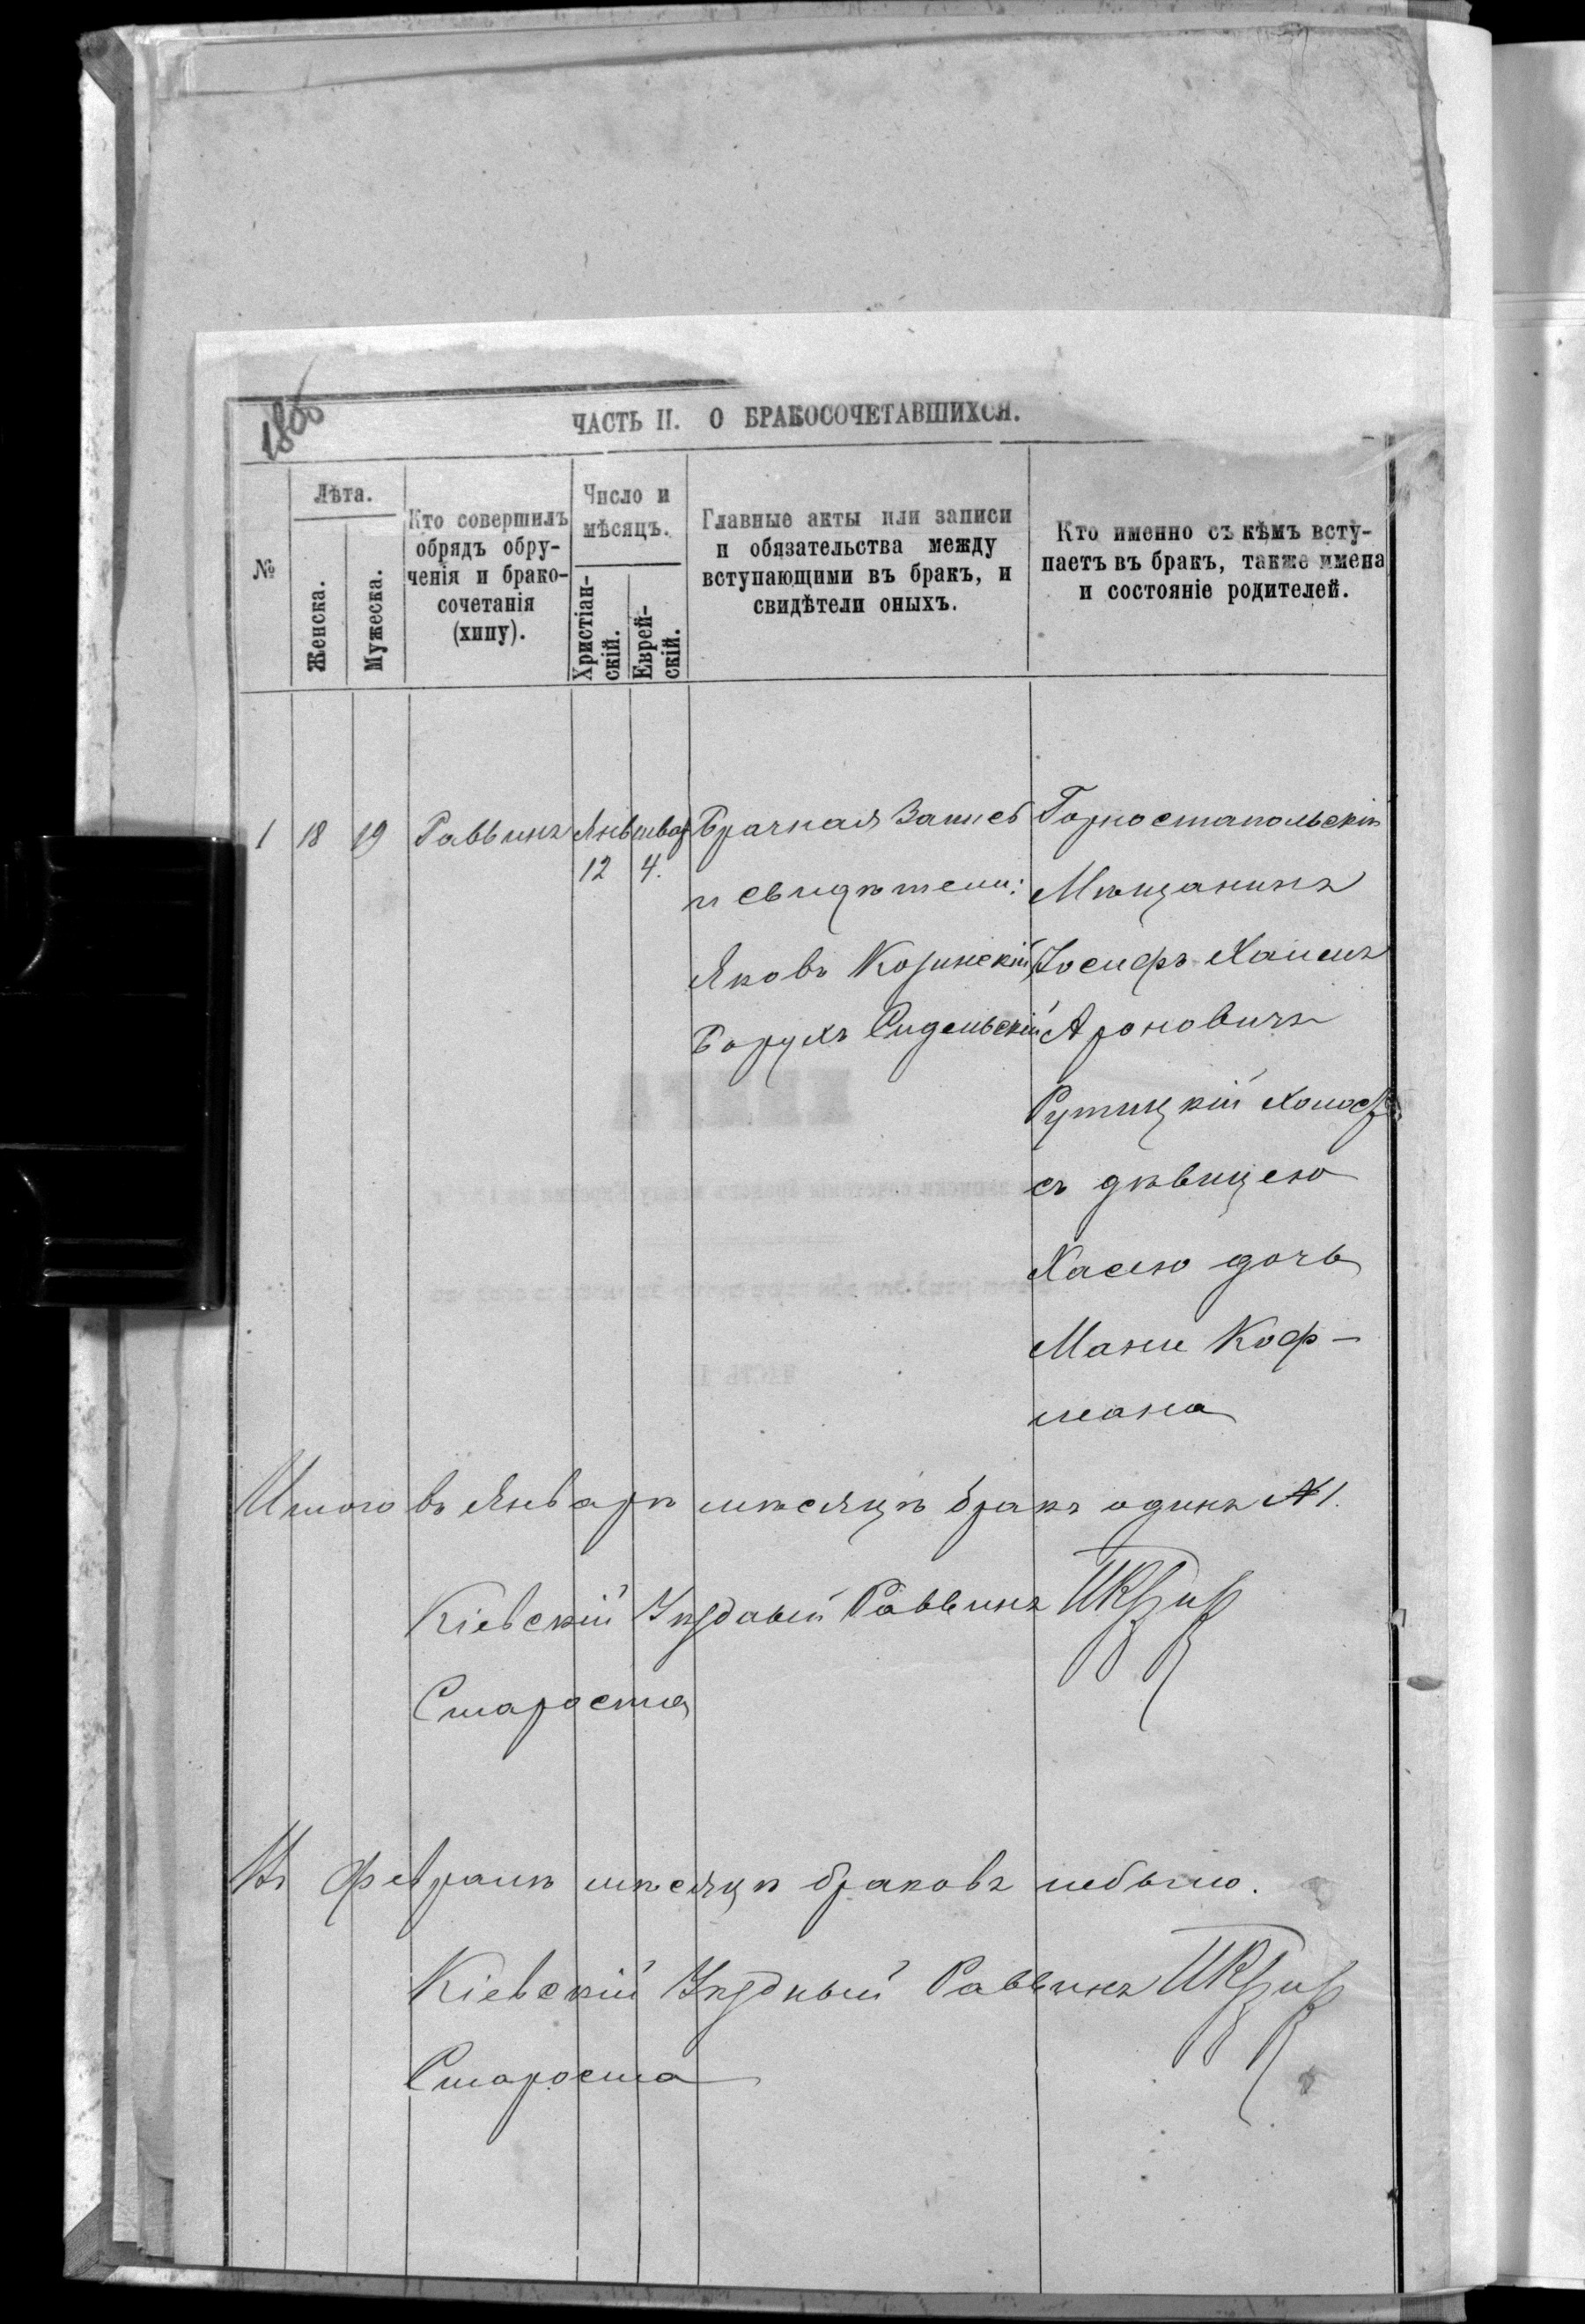 ЧАСТЬ II. О БРАКОСОЧЕТАВШИХСЯ.
№
Лѣта.
Женска.
Мужеска.
Кто совершилъ
обрядъ обру-
ченія и брако-
сочетанія
(хипу).
Число и
мѣсяцъ.
Христіан-
скій.
Еврей-
скій.
Главные акты или записи
и обязательства между
вступающими въ бракъ, и
свидѣтели оныхъ.
Кто именно съ кѣмъ всту-
паетъ въ бракъ, также имена
и состояніе родителей.
1 18 19 Раввинъ
12 4.
Брачная Запись
и свидѣтели:
Яковъ Козинскій
Борухъ Сидельскій
Горностапольскій
Мѣщанинъ
Іосифъ Хаимъ
Ароновичъ
Рутицкій Холостъ
съ дѣвицею
Хасею дочь
Мани Коф-
мана
Итого въ Январѣ мѣсяцѣ бракъ одинъ №1.
Кіевскій Уѣздный Раввинъ
Староста
Въ Февралѣ мѣсяцѣ браковъ небыло.
Кіевскій Уѣздный Раввинъ
Староста